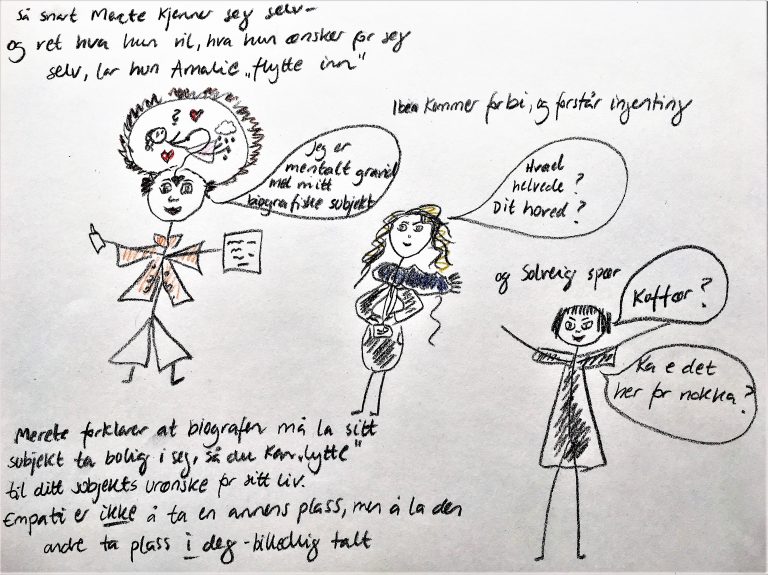 Så snart Merete kjenner seg selv -
og vet hva hun vil, hva hun ønsker for seg
selv, lar hun Amalie „flytte inn"
?
Jeg er
mentalt gravid
med mitt
biografiske subjekt
Iben kommer forbi, og forstår ingenting
Hvad
helvede?
Dit hoved?
og Solveig spør
Koffer?
Ka e det
her for nokka?
Merete forklarer at biografen må la sitt
subjekt ta bolig i seg, så du kan „lytte"
til ditt subjekts urønske for sitt liv.
Empati er ikke å ta en annens plass, men å la den
andre ta plass i deg - billedlig talt